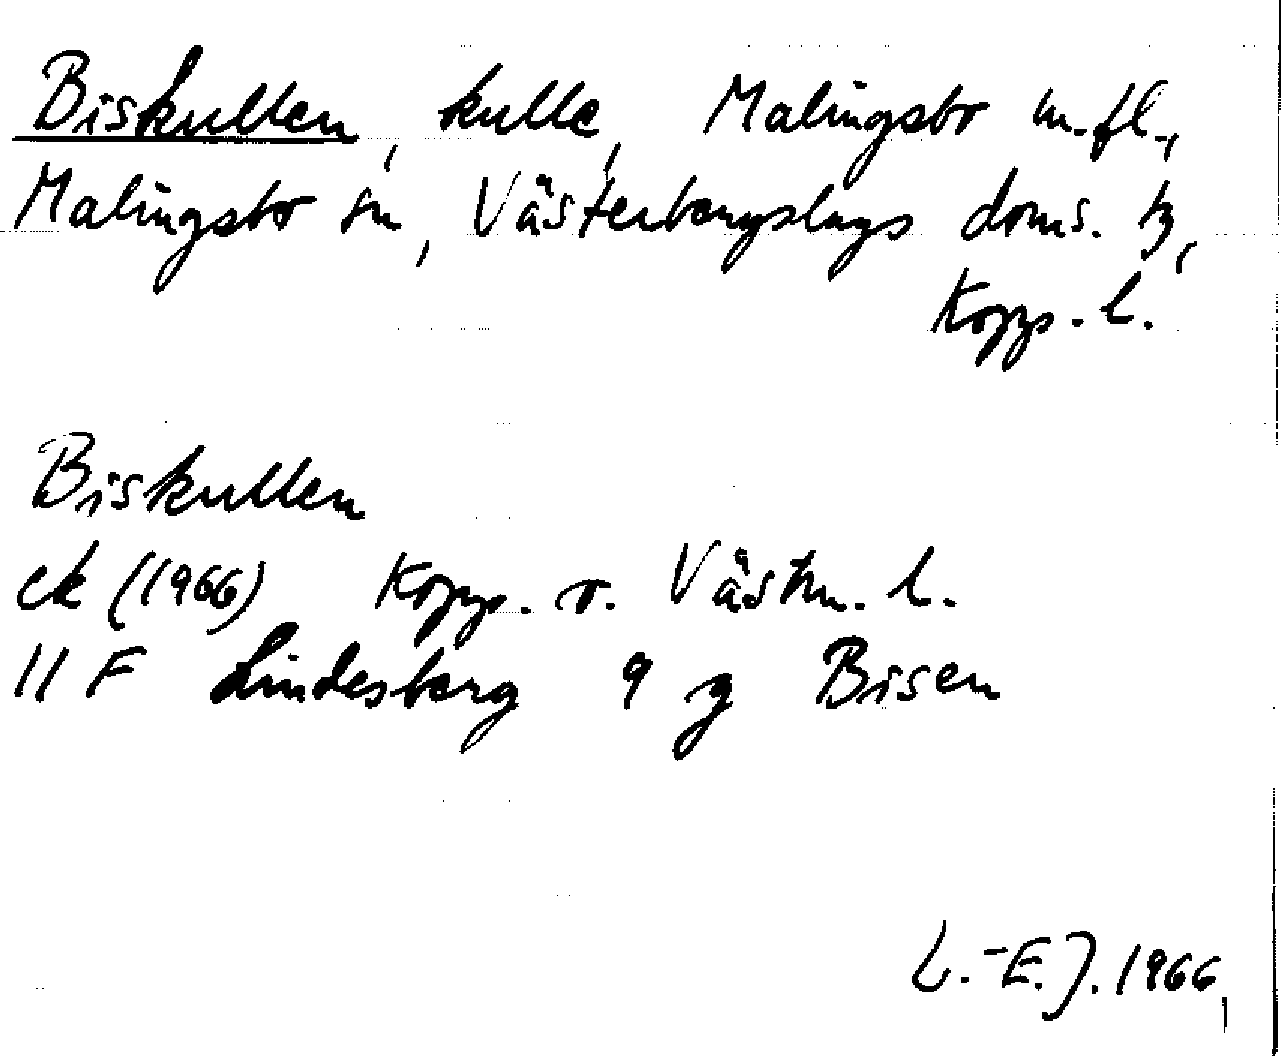 Biskullen, kulle, Malingsbo m.fl.,
Malingsbo sn, Västerbergslags doms. tg,
Kopp. l.
Biskullen
ek (1966) Kopp. o. Västm. l.
11 F Lindesberg 9 g Bisen
L.-E. J. 1966